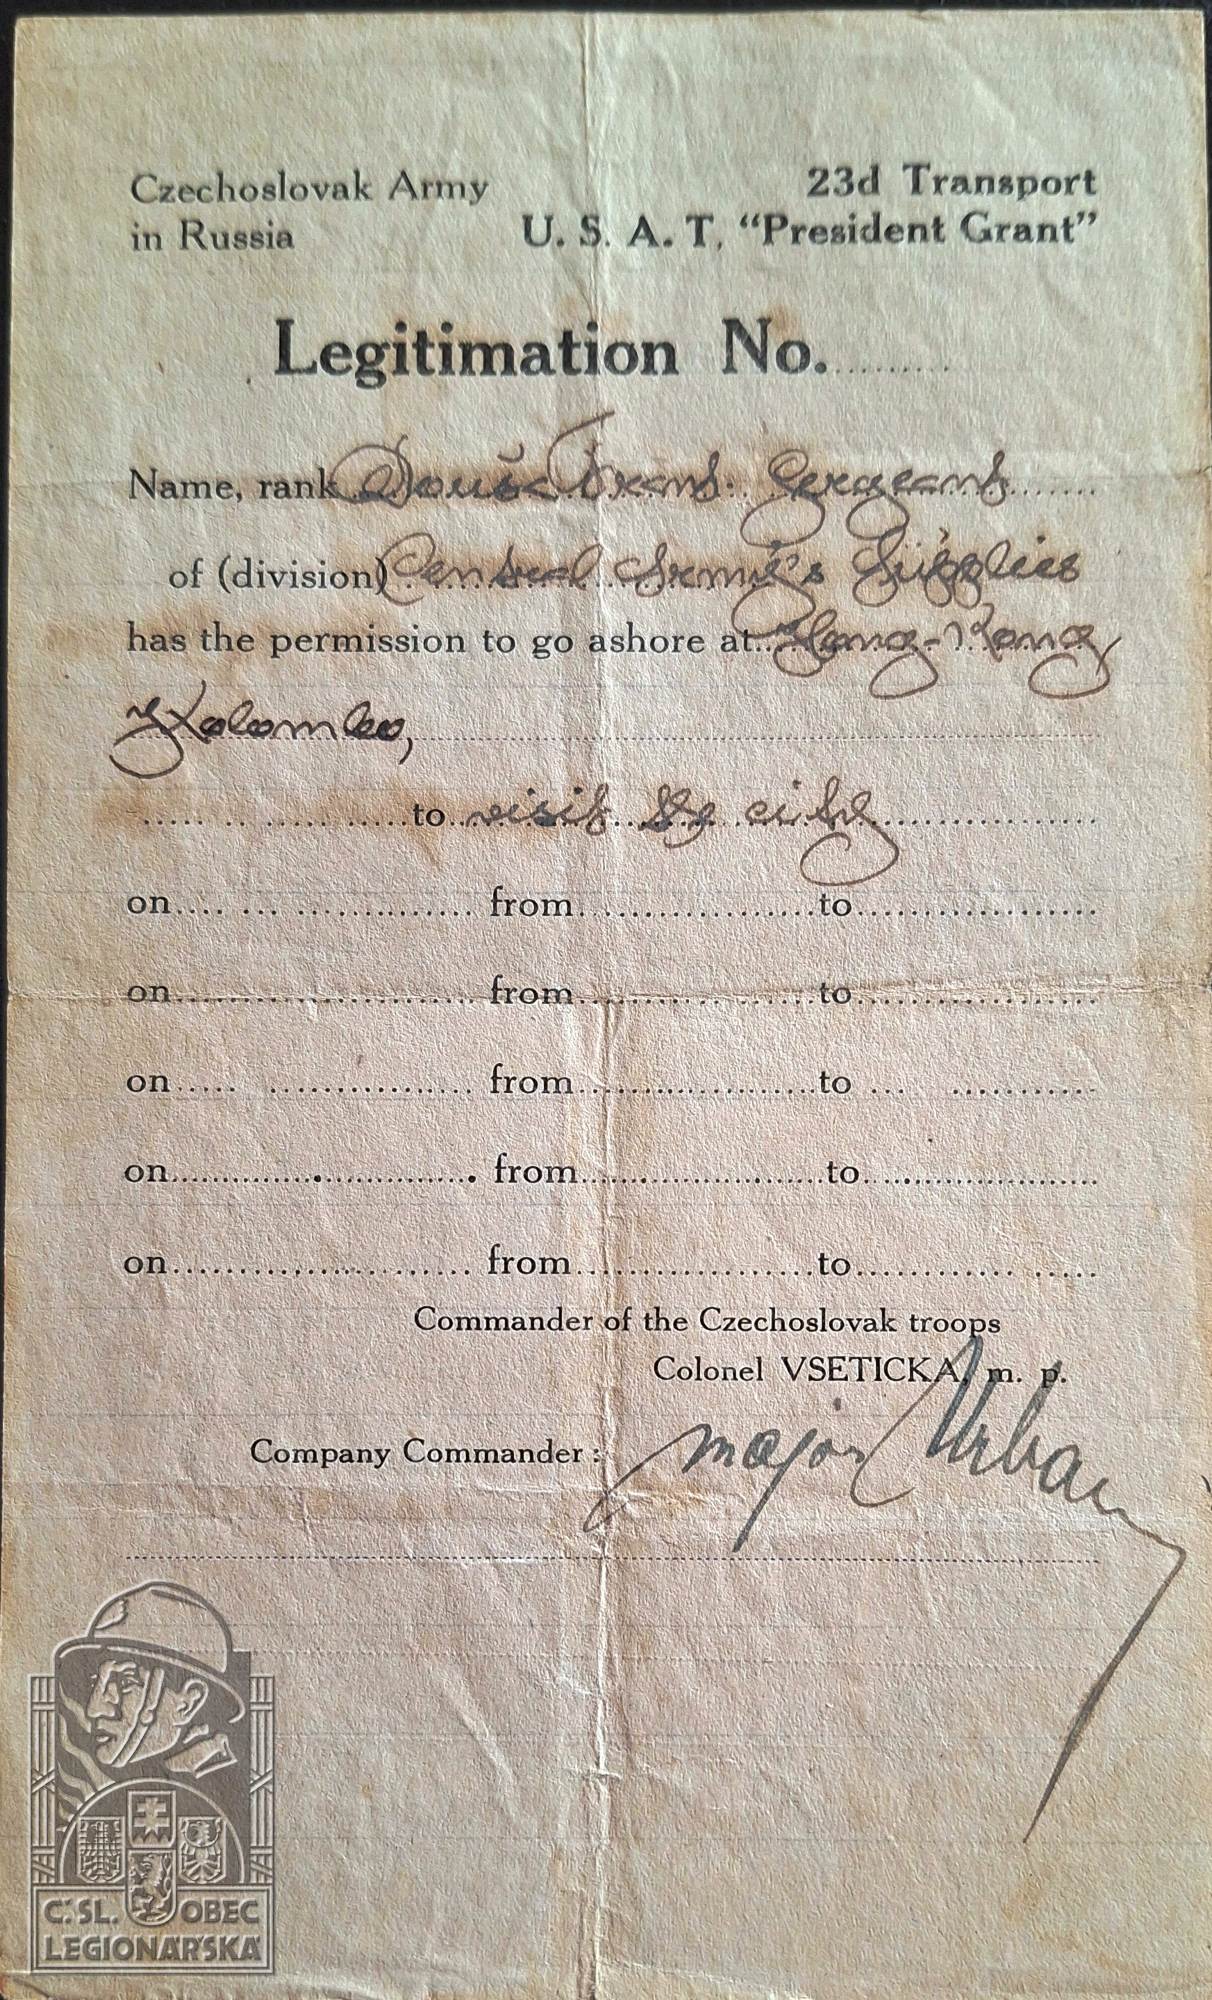 Czechoslovak Army
in Russia
23d Transport
U. S. A. T. "President Grant"
Legitimation No.
Name, rank Douša Frant. Sergeant
of (division) Central Army's Supplies
has the permission to go ashore at Hong-Kong
Kolombo,
to visit the city
on from to
on from to
on from to
on from to
on from to
Commander of the Czechoslovak troops
Colonel VSETICKA, m. p.
Company Commander: major Urban
Č. SL. OBEC
LEGIONÁŘSKÁ